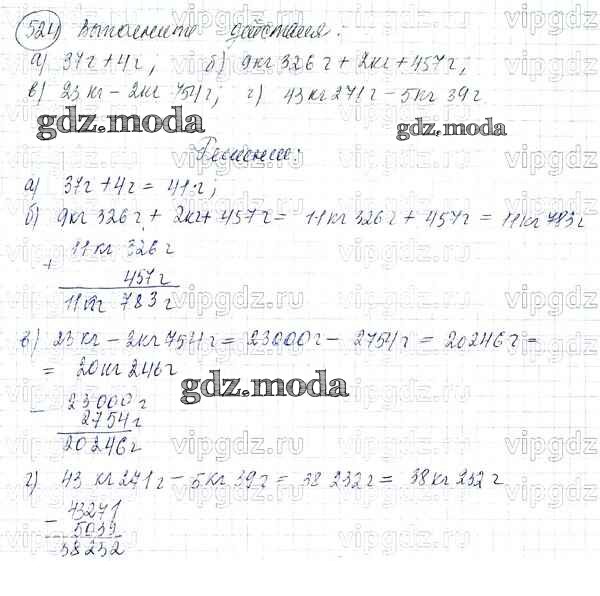 524) Выполните действия:
а) 37г + 4г; б) 9кг 326г + 2кг + 457г;
в) 23 кг – 2кг 754г; г) 43кг 271г – 5кг 39г
gdz.moda gdz.moda
Решение:
а) 37г + 4г = 41г;
б) 9кг 326г + 2кг + 457г = 11кг 326г + 457г = 11кг 783г
11кг 326г
+
457г
11кг 783г
в) 23 кг – 2кг 754г = 23000г – 2754г = 20246г =
= 20кг 246г
gdz.moda
– 23000г
2754г
20246г
г) 43 кг 271г – 5кг 39г = 38 232г = 38кг 232г
43271
–
5039
38232
gdz.moda
vipgdz.ru